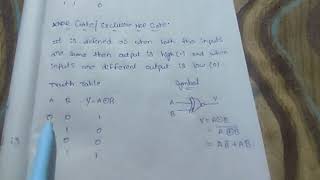 1 1 0
XNOR Gate / Exclusive NOR Gate:
It is defined as when both the inputs
are same then output is high (1) and when
inputs are different output is low (0).
Truth Table Symbol
A B Y = A⊙B
A B Y
0 0 1
1 0
0 0
1 1
Y = A⊙B